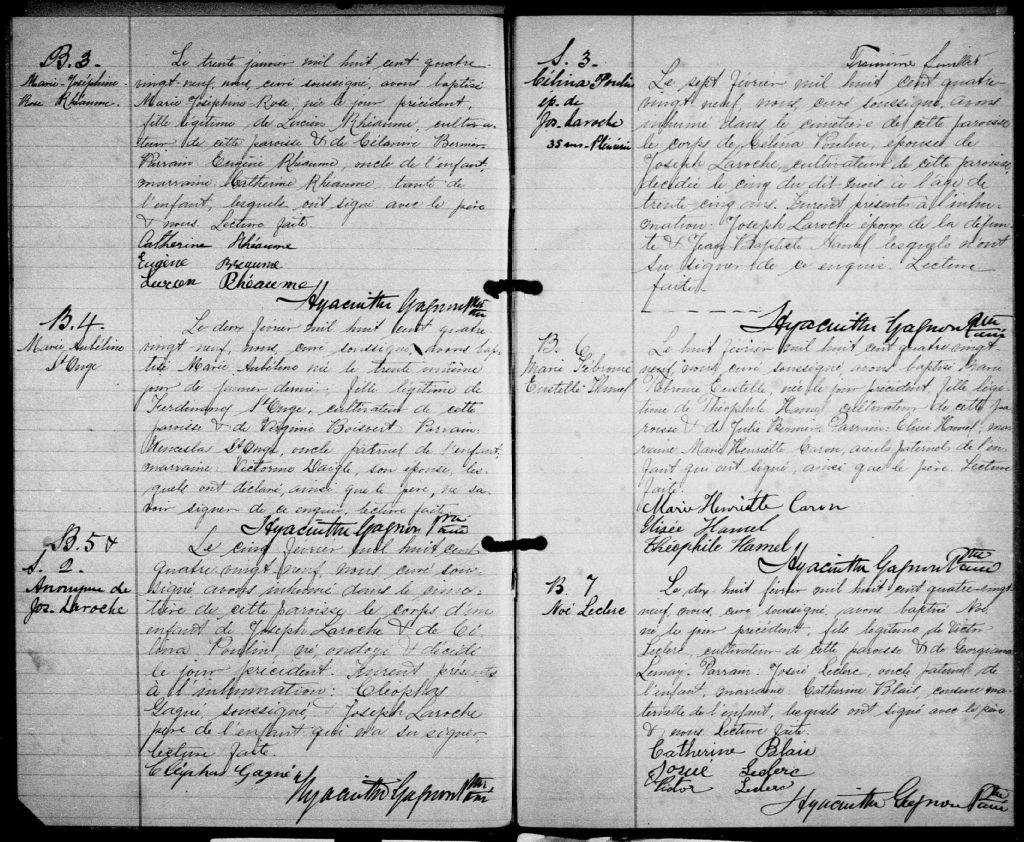 B. 3
Marie-Joséphine
Rose Rhéaume.
Le trente janvier mil huit cent quatre-
vingt neuf, nous, curé soussigné, avons baptisé
Marie Joséphine Rose, née le jour précédent,
fille légitime de Lucien Rhéaume, cultiva-
teur de cette paroisse & de Célanire Bernier.
Parrain Eugène Rhéaume, oncle de l'enfant,
marraine Catherine Rhéaume, tante de
l'enfant, lesquels ont signé avec le père
& nous. Lecture faite.
Catherine Rhéaume
Eugène Rhéaume
Lucien Rhéaume
Hyacinthe Gagnon Ptre
curé
B. 4.
Marie Aubéline
St Onge
Le deux février mil huit cent quatre
vingt neuf, nous, curé soussigné, avons bap-
tisé Marie Aubéline née le trente unième
jour de janvier dernier, fille légitime de
Ferdinand St Onge, cultivateur de cette
paroisse & de Virginie Boisvert. Parrain:
Wenceslas St Onge, oncle paternel de l'enfant,
marraine: Victorine Daigle son épouse, les-
quels ont déclaré, ainsi que le père, ne sa-
voir signer de ce enquis, lecture faite.
Hyacinthe Gagnon Ptre
curé
B. 5 &
S. 2.
Anonyme de
Jos. Laroche
Le cinq février mil huit cent
quatre vingt neuf, nous, curé sous-
signé, avons inhumé dans le cime-
tière de cette paroisse le corps d'un
enfant de Joseph Laroche & de Cé-
lina Poulin, né, ondoyé & décédé
le jour précédent. Furent présents
à l'inhumation: Cléophas
Gagné soussigné, & Joseph Laroche
père de l'enfant qui n'a su signer,
lecture faite.
Cléophas Gagné
Hyacinthe Gagnon Ptre
curé
Troisième feuillet
S. 3
Célina Poulin
ép. de
Jos. Laroche
35 ans - Pleurésie
Le sept février mil huit cent quatre
vingt neuf, nous, curé soussigné, avons
inhumé dans le cimetière de cette paroisse
le corps de Célina Poulin, épouse de
Joseph Laroche, cultivateur de cette paroisse,
décédée le cinq du dit mois à l'âge de
trente cinq ans. Furent présents à l'inhu-
mation: Joseph Laroche époux de la défun-
te & Jean-Baptiste Hamel lesquels n'ont
su signer de ce enquis. Lecture
faite.
Hyacinthe Gagnon Ptre
curé
B. 6
Marie Fébronie
Eustelle Hamel
Le huit février mil huit cent quatre vingt-
neuf, nous, curé soussigné, avons baptisé Marie
Fébronie Eustelle, née le jour précédent fille légi-
time de Théophile Hamel cultivateur de cette pa-
roisse & de Julie Bernier. Parrain: Elisée Hamel, mar-
raine Marie Henriette Caron, aieuls paternel de l'en-
fant qui ont signé, ainsi que le père. Lecture
faite.
Marie Henriette Caron
Elisée Hamel
Théophile Hamel
Hyacinthe Gagnon Ptre
curé
B. 7
Noé Leclerc
Le dix huit février mil huit cent quatre-vingt
neuf, nous, curé soussigné, avons baptisé Noé,
né le jour précédent, fils légitime de Victor
Leclerc, cultivateur de cette paroisse & de Georgiana
Lemay. Parrain: Josué Leclerc, oncle paternel de
l'enfant, marraine: Catherine Blais, cousine ma-
ternelle de l'enfant, lesquels ont signé avec le père
& nous. Lecture faite.
Catherine Blais
Josué Leclerc
Victor Leclerc
Hyacinthe Gagnon Ptre
curé